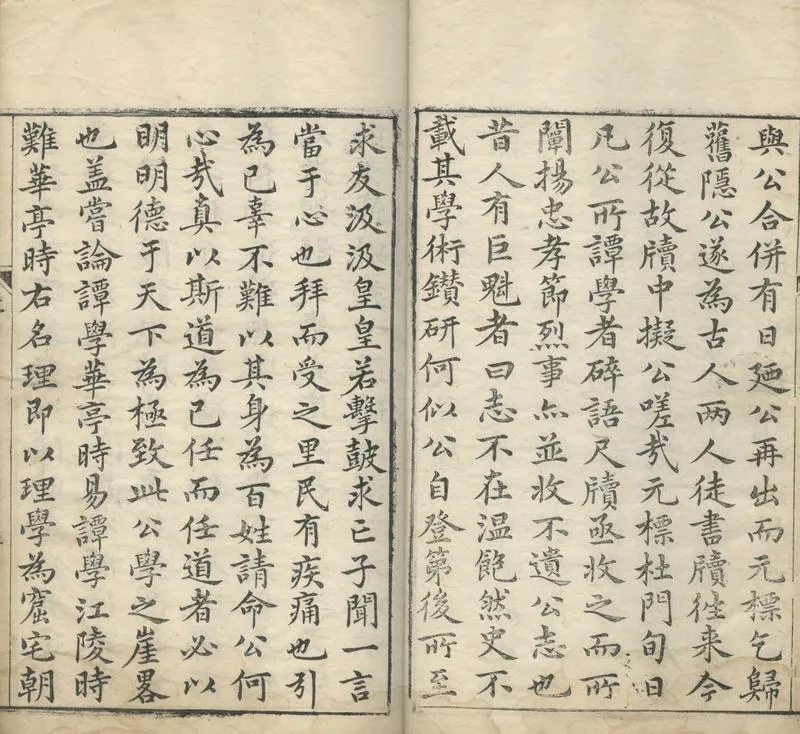 與公合併有日廼公再出而元標乞歸
舊隱公遂為古人两人徒書牘徃来今
復從故牘中擬公嗟㢤元標杜門旬日
凡公所譚學者碎語尺牘亟收之而所
闡揚忠孝節烈事亦並收不遺公志也
昔人有巨魁者曰志不在温飽然史不
載其學術鑚研何似公自登第後所至
求友汲汲皇皇若擊鼓求亡子聞一言
當于心也拜而受之里民有疾痛也引
為已辜不難以其身為百姓請命公何
心㢤真以斯道為已任而任道者必以
明明德于天下為極致此公學之崖畧
也盖嘗論譚學華亭時易譚學江陵時
難華亭時右名理即以理學為窟宅朝